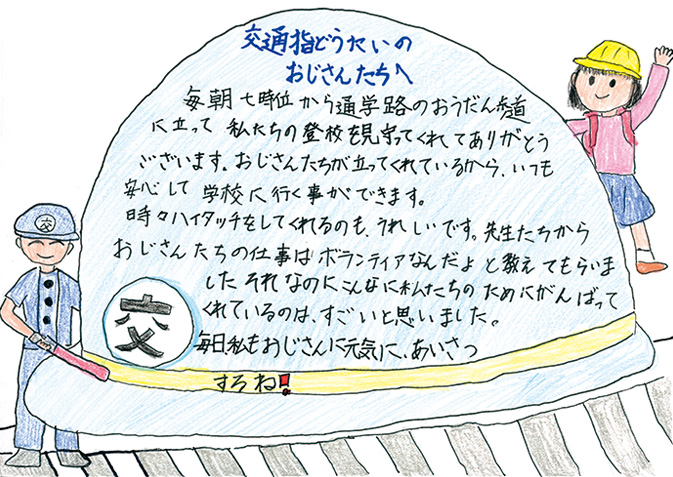 交通指どうたいの
おじさんたちへ
毎朝七時位から通学路のおうだん歩道
に立って私たちの登校を見守ってくれてありがとう
ございます。おじさんたちが立ってくれているから、いつも
安心して学校に行く事ができます。
時々ハイタッチをしてくれるのも、うれしいです。先生たちから
おじさんたちの仕事はボランティアなんだよと教えてもらいま
したそれなのにこんなに私たちのためにがんばって
くれているのは、すごいと思いました。
毎日私もおじさんに元気に、あいさつ
するね!
交
交